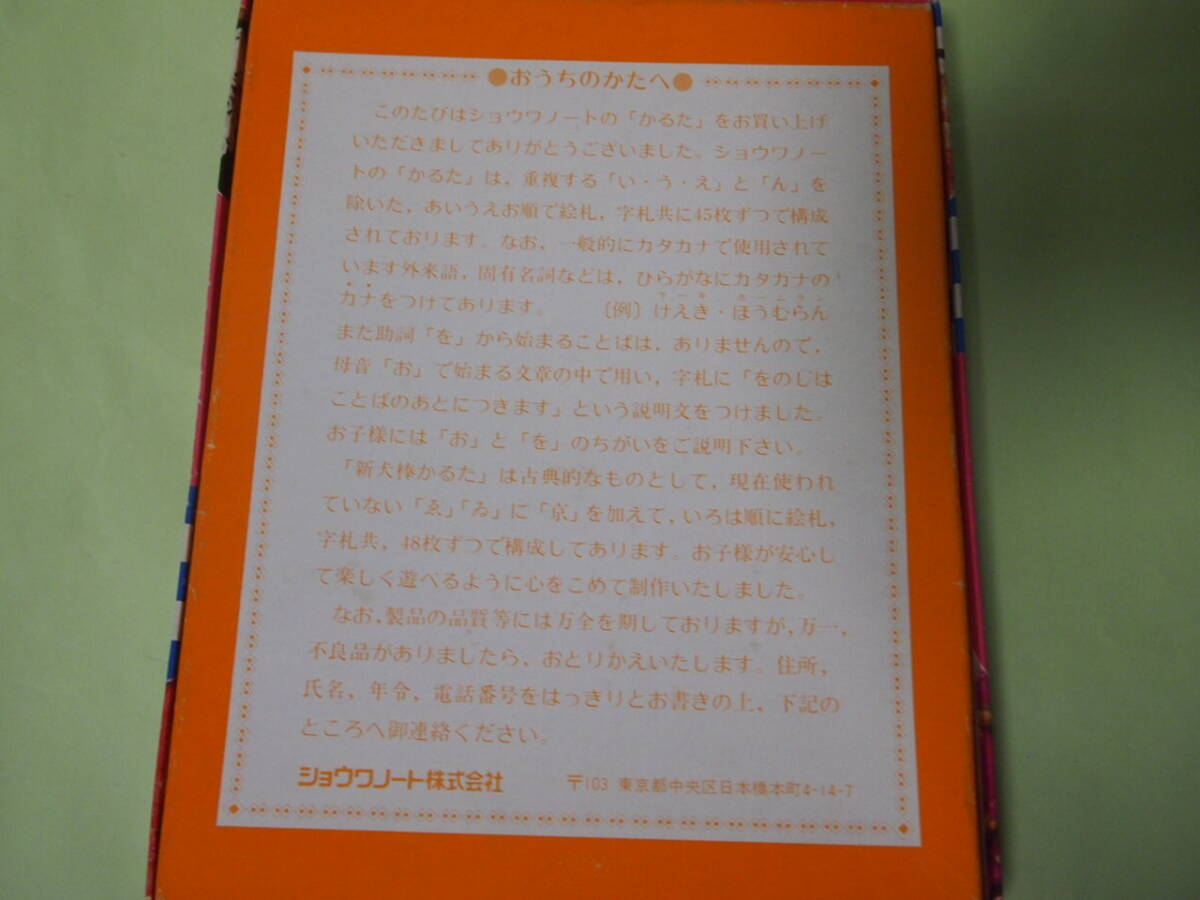 ●おうちのかたへ●
このたびはショウワノートの「かるた」をお買い上げ
いただきましてありがとうございました。ショウワノー
トの「かるた」は，重複する「い・う・え」と「ん」を
除いた，あいうえお順で絵札，字札共に45枚ずつで構成
されております。なお，一般的にカタカナで使用されて
います外来語，固有名詞などは，ひらがなにカタカナの
ケーキ ホームラン
カナをつけてあります。 〔例〕けえき・ほうむらん
また助詞「を」から始まることばは，ありませんので，
母音「お」で始まる文章の中で用い，字札に「をのじは
ことばのあとにつきます」という説明文をつけました。
お子様には「お」と「を」のちがいをご説明下さい。
「新犬棒かるた」は古典的なものとして，現在使われ
ていない「ゑ」「ゐ」に「京」を加えて，いろは順に絵札，
字札共，48枚ずつで構成してあります。お子様が安心し
て楽しく遊べるように心をこめて制作いたしました。
なお，製品の品質等には万全を期しておりますが，万一，
不良品がありましたら，おとりかえいたします。住所，
氏名，年令，電話番号をはっきりとお書きの上，下記の
ところへ御連絡ください。
ショウワノート株式会社 〒103 東京都中央区日本橋本町4-14-7